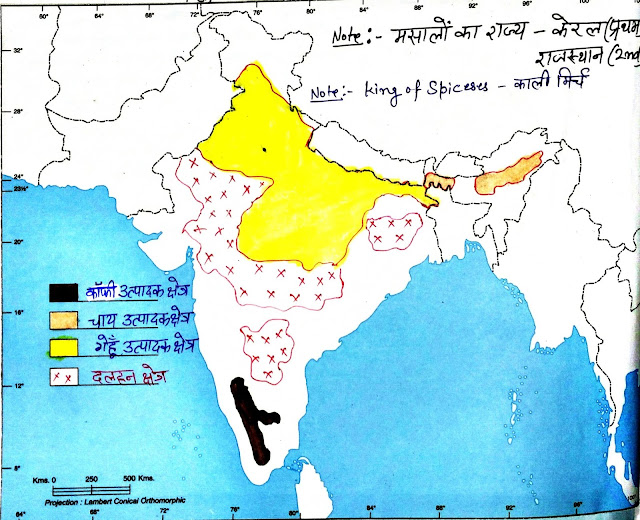 60° 64° 68° 72° 76° 80° 84° 88° 92° 96° 100°
Note:- मसालों का राज्य - केरल (प्रथम)
राजस्थान (2nd)
Note:- King of Spiceses - काली मिर्च
32°
28°
24°
23½°
20°
16°
12°
8°
24°
20°
16°
12°
8°
कॉफी उत्पादक क्षेत्र
चाय उत्पादक क्षेत्र
गेहूँ उत्पादक क्षेत्र
दलहन क्षेत्र
Kms. 0 250 500 Kms.
Projection : Lambert Conical Orthomorphic
64° 68° 72° 76° 80° 84° 88° 92° 96°